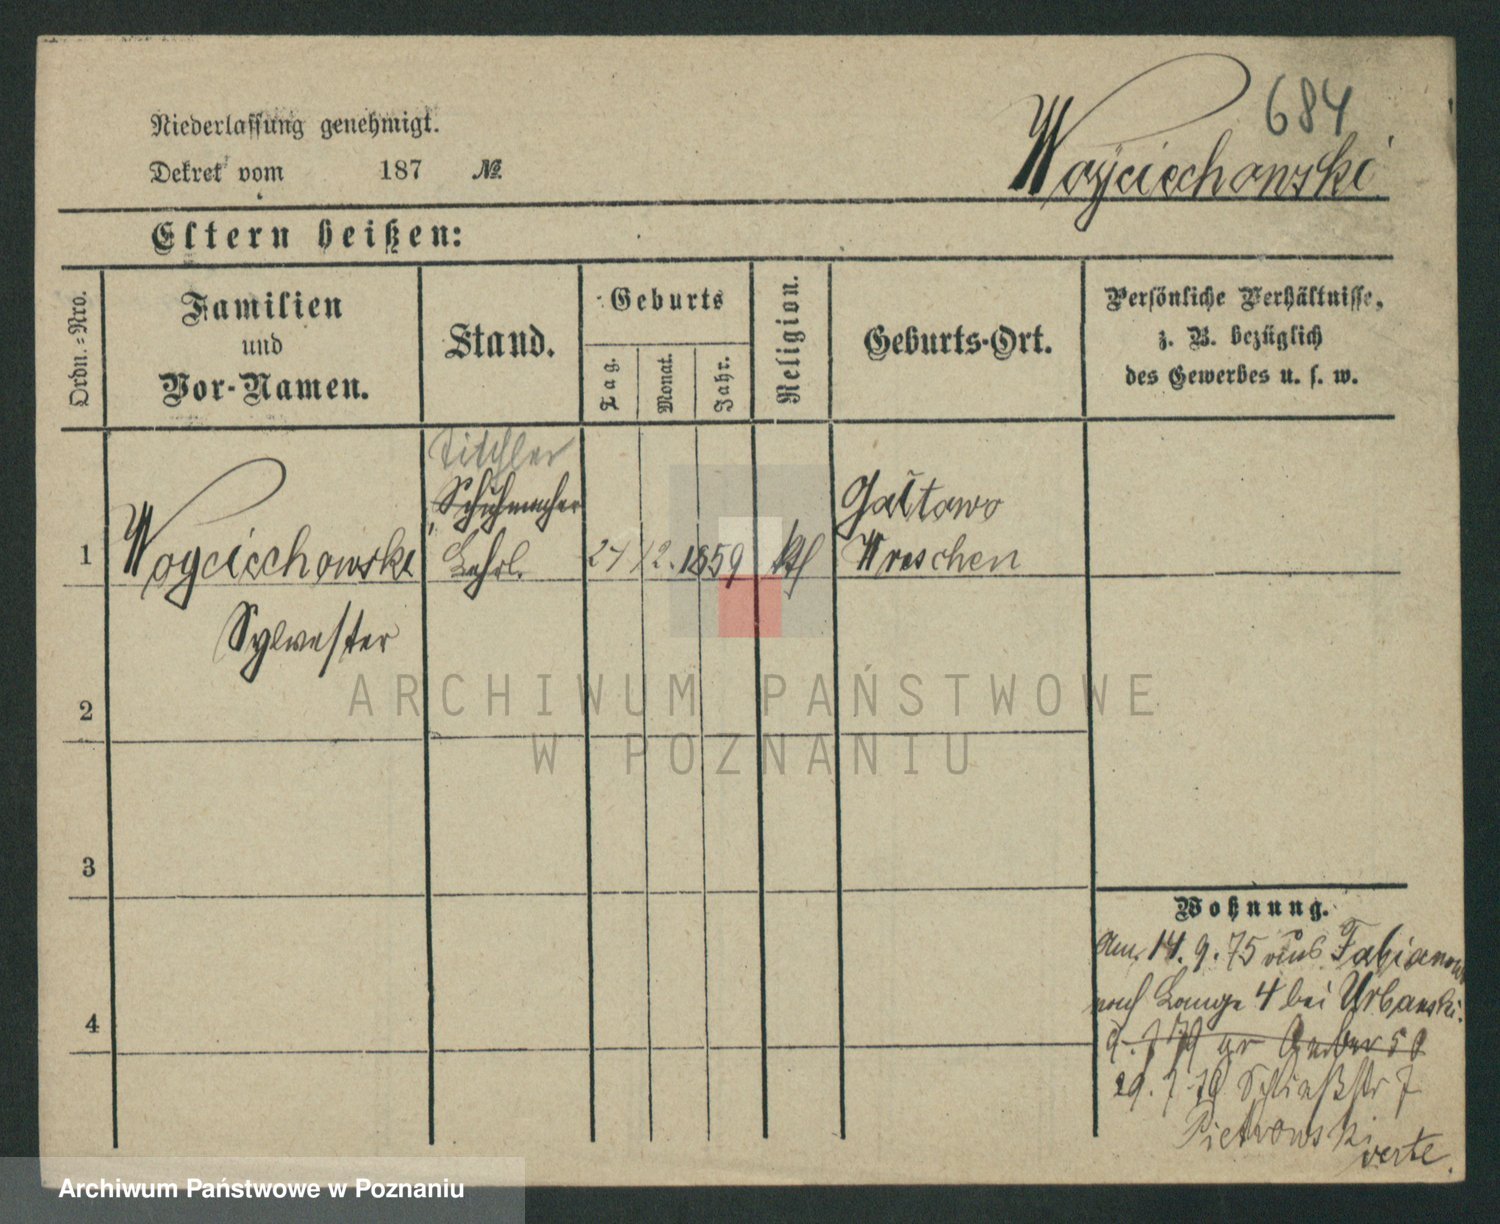 684
Niederlassung genehmigt.
Dekret vom 187 №
Woyciechowski
Eltern heißen:
Ordn.-Nro.
Familien
und
Vor-Namen.
Stand.
Geburts
Tag.
Monat.
Jahr.
Religion.
Geburts-Ort.
Persönliche Verhältnisse,
z. B. bezüglich
des Gewerbes u. s. w.
1
Woyciechowski
Sylvester
Tischler
Schuhmacher
Lehrl.
12. 1859
kth
Wreschen
2
3
4
Wohnung.
Am 14. 9. 75 aus Fabianowo
nach Lange 4 bei Urbanski.
9. 7 79 gr Gerber 50
29. 7. 79 Schießstr 7
Pietrowski
verte.
ARCHIWUM PAŃSTWOWE
W POZNANIU
Archiwum Państwowe w Poznaniu